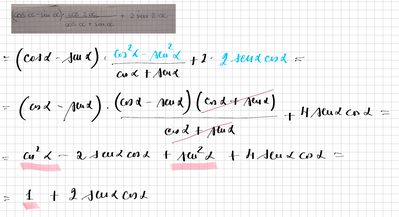 (cos α - sin α) · cos 2α / cos α + sin α + 2 sin 2α
= (cosα - senα) · cos²α - sen²α / cosα + senα + 2 · 2 senα cosα =
= (cosα - senα) · (cosα - senα)(cosα + senα) / cosα + senα + 4 senα cosα =
= cos²α - 2 senα cosα + sen²α + 4 senα cosα =
= 1 + 2 senα cosα